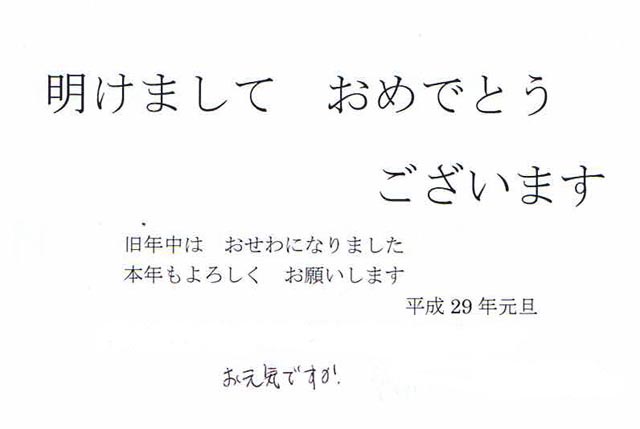 明けまして　おめでとう
ございます
旧年中は　おせわになりました
本年もよろしく　お願いします
平成 29 年元旦
お元気ですか.